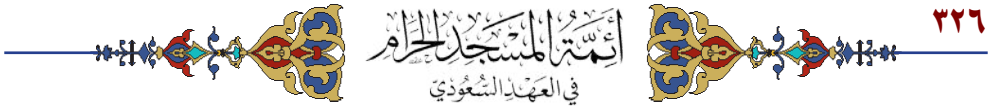 ٣٢٦
أئمة المسجد الحرام
في العهد السعودي